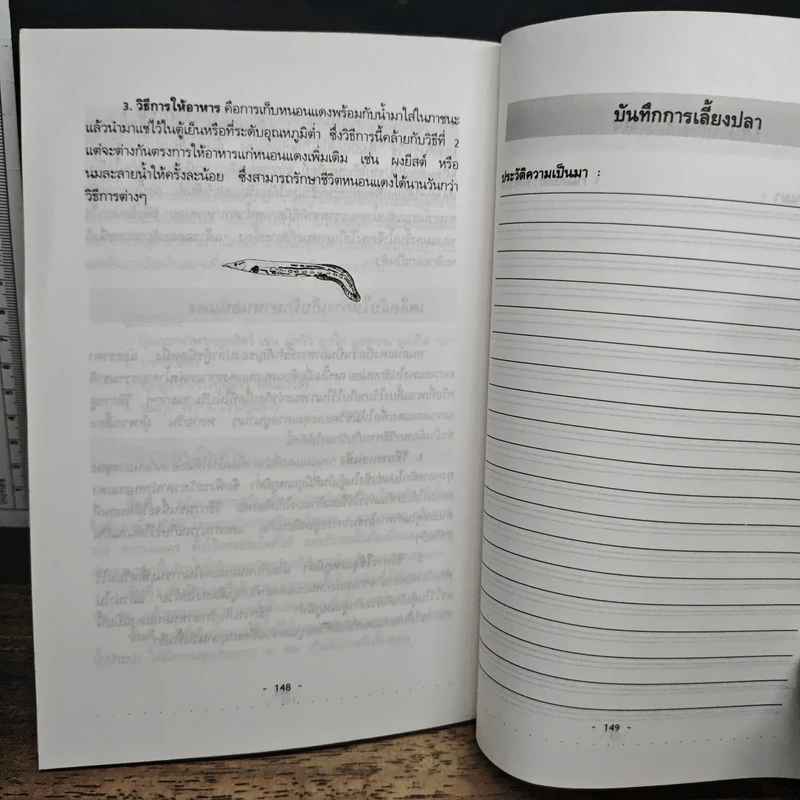 3. วิธีการให้อาหาร คือการเก็บหนอนแดงพร้อมกับน้ำมาใส่ในภาชนะ
แล้วนำมาแช่ไว้ในตู้เย็นหรือที่ระดับอุณหภูมิต่ำ ซึ่งวิธีการนี้คล้ายกับวิธีที่ 2
แต่จะต่างกันตรงการให้อาหารแก่หนอนแดงเพิ่มเติม เช่น ผงยีสต์ หรือ
นมละลายน้ำให้ครั้งละน้อย ซึ่งสามารถรักษาชีวิตหนอนแดงได้นานวันกว่า
วิธีการต่างๆ
- 148 -
บันทึกการเลี้ยงปลา
ประวัติความเป็นมา :
- 149 -